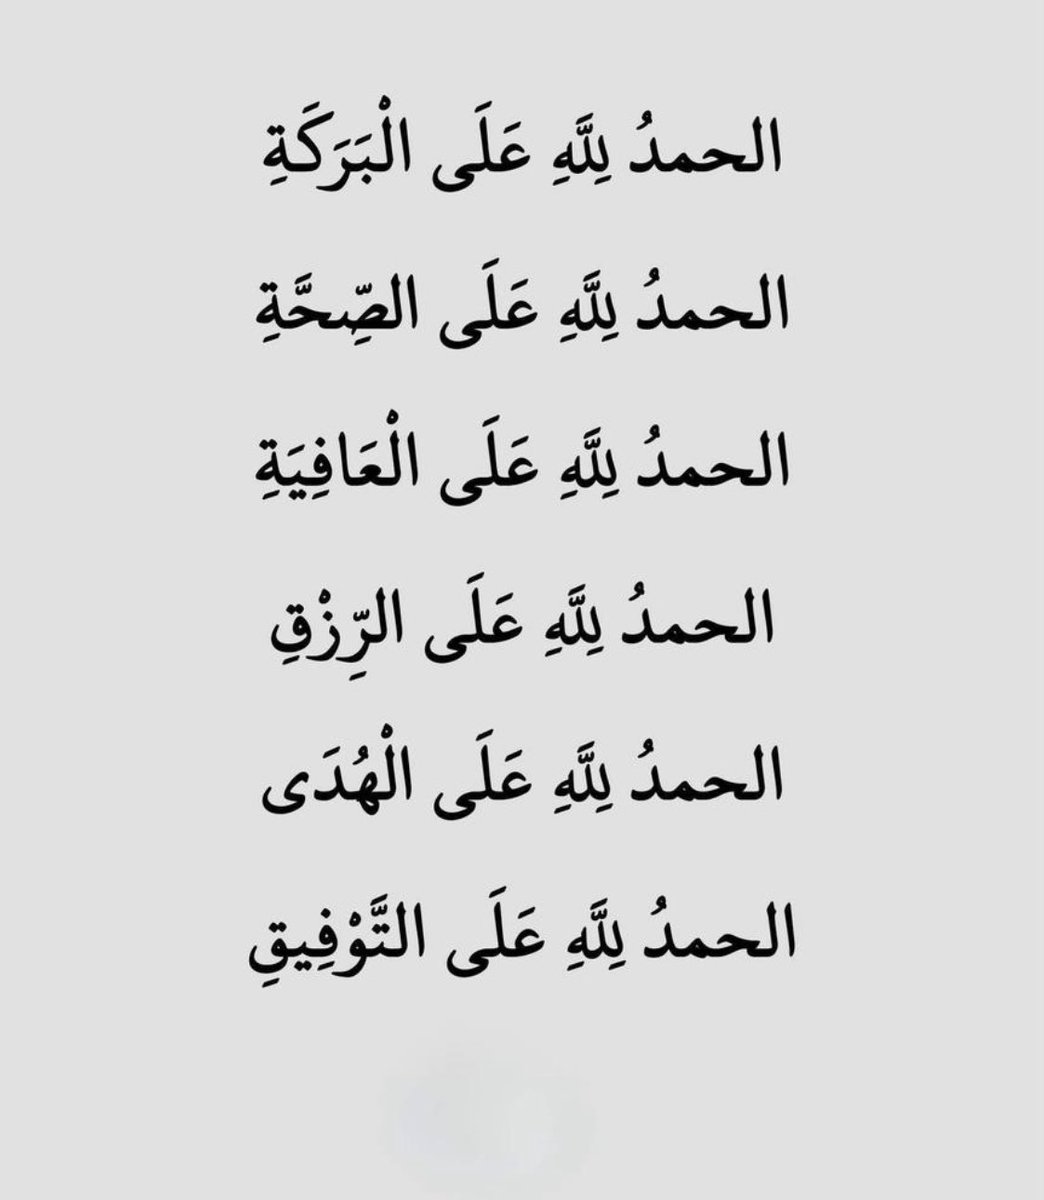 الحمدُ لِلَّهِ عَلَى الْبَرَكَةِ
الحمدُ لِلَّهِ عَلَى الصِّحَّةِ
الحمدُ لِلَّهِ عَلَى الْعَافِيَةِ
الحمدُ لِلَّهِ عَلَى الرِّزْقِ
الحمدُ لِلَّهِ عَلَى الْهُدَى
الحمدُ لِلَّهِ عَلَى التَّوْفِيقِ